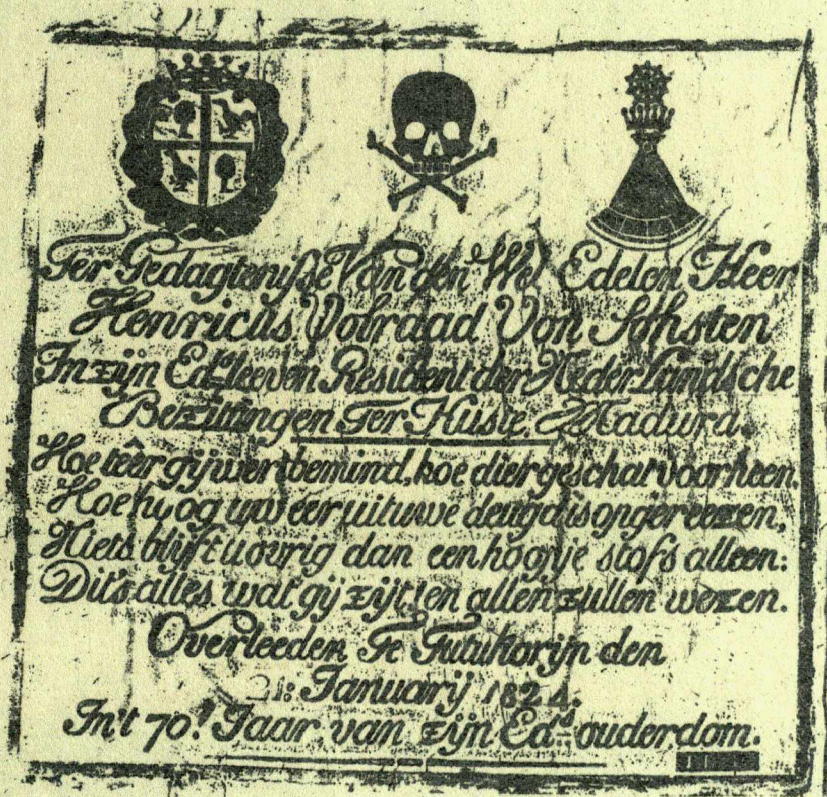 Ter Gedagtenyße Van den Wel Edelen Heer
Henricus Volraad Von Sohsten
In zijn Ed.s leeven Resident der Nederlandsche
Bezittingen Ter Kuste Madura.
Hoe têêr gij wert bemind, hoe dier geschat voorheen.
Hoe hoog uw eer uit uwe deugd is opgereezen,
Niets blijft u ovrig dan een hoopje stofs alleen:
Dit's alles wat gij zijt, en allen zullen wezen.
Overleeden Te Tutukorijn den
21: Januarij 1824.
In't 70.st Jaar van zijn Ed.ls ouderdom.